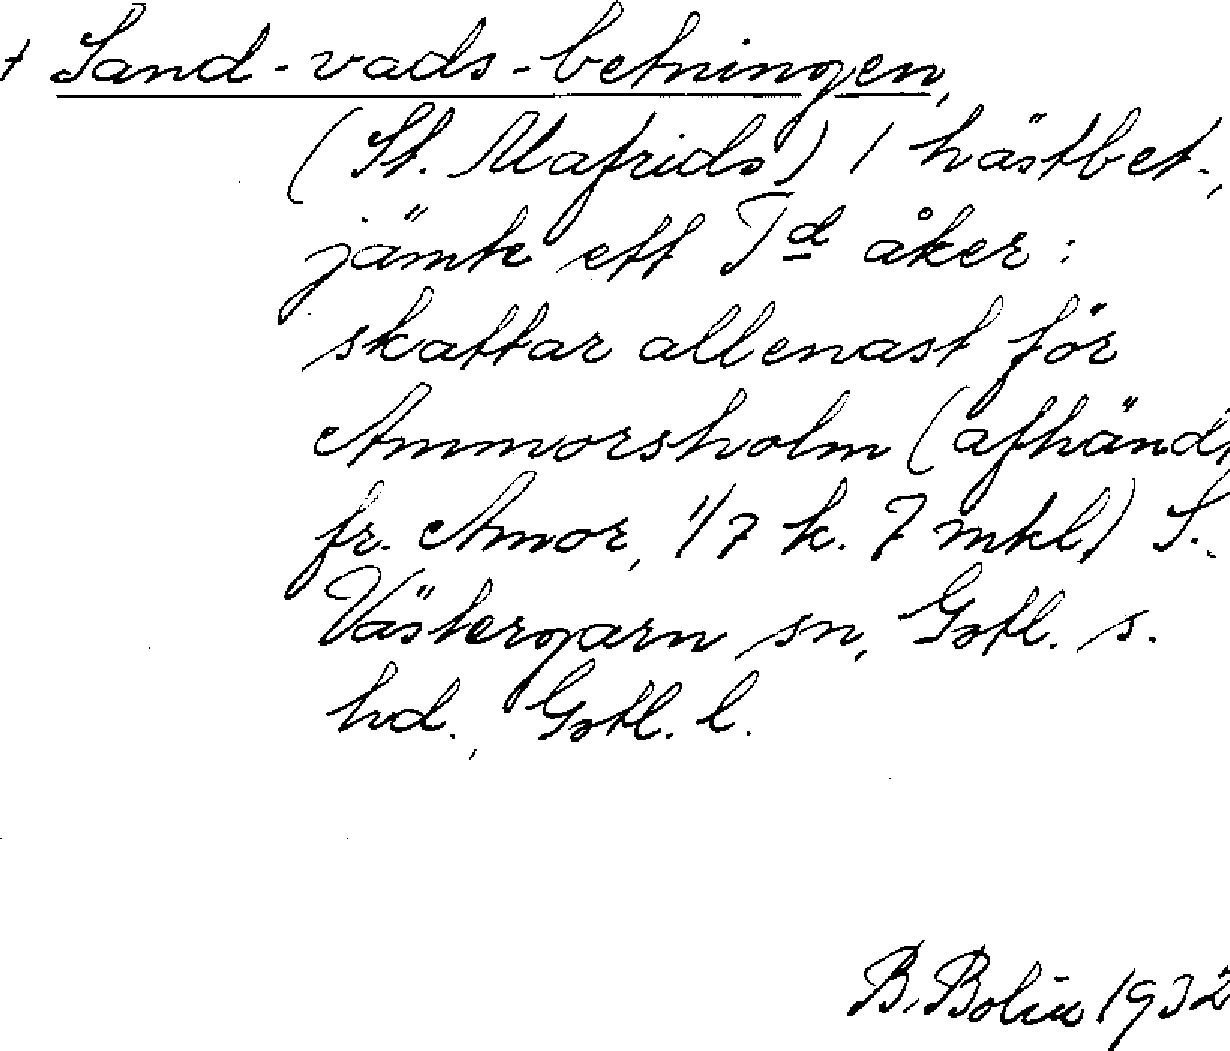 † Sand-vads-betningen,
(St. Mafrids) 1 hästbet.,
jämte ett Td åker :
skattar allenast för
Ammorsholm (afhändt
fr. Amor, 1/7 k. 7 mkl) S.
Västergarn sn, Gotl. s.
hd., Gotl. l.
B. Bolin 1932